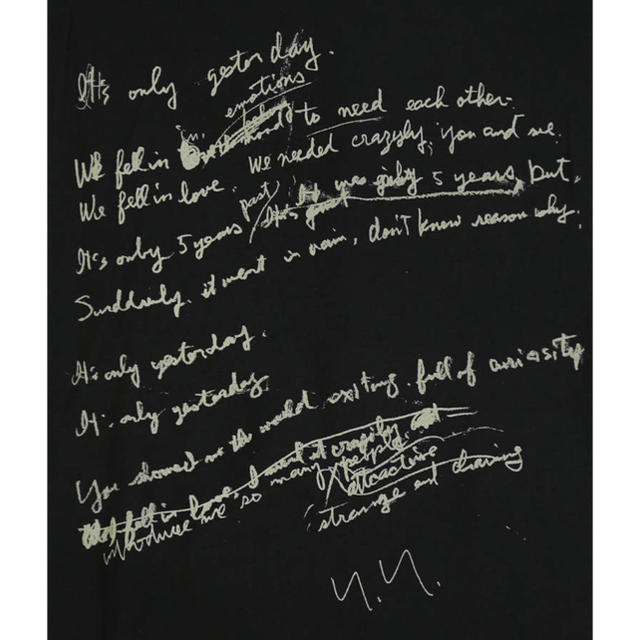 It's only yesterday.
emotions
We fell in to need each other.
We fell in love. We needed crazyly, you and me.
It's only 5 years past, It was only 5 years, but,
Surddinly. it went in vain, don't know reason why,
It's only yesterday.
It's only yesterday,
You showed me the world exiting. full of curiosity
fell in love. I want it crazyly
introduce me so many people.
attractive
strange and charming
Y.Y.